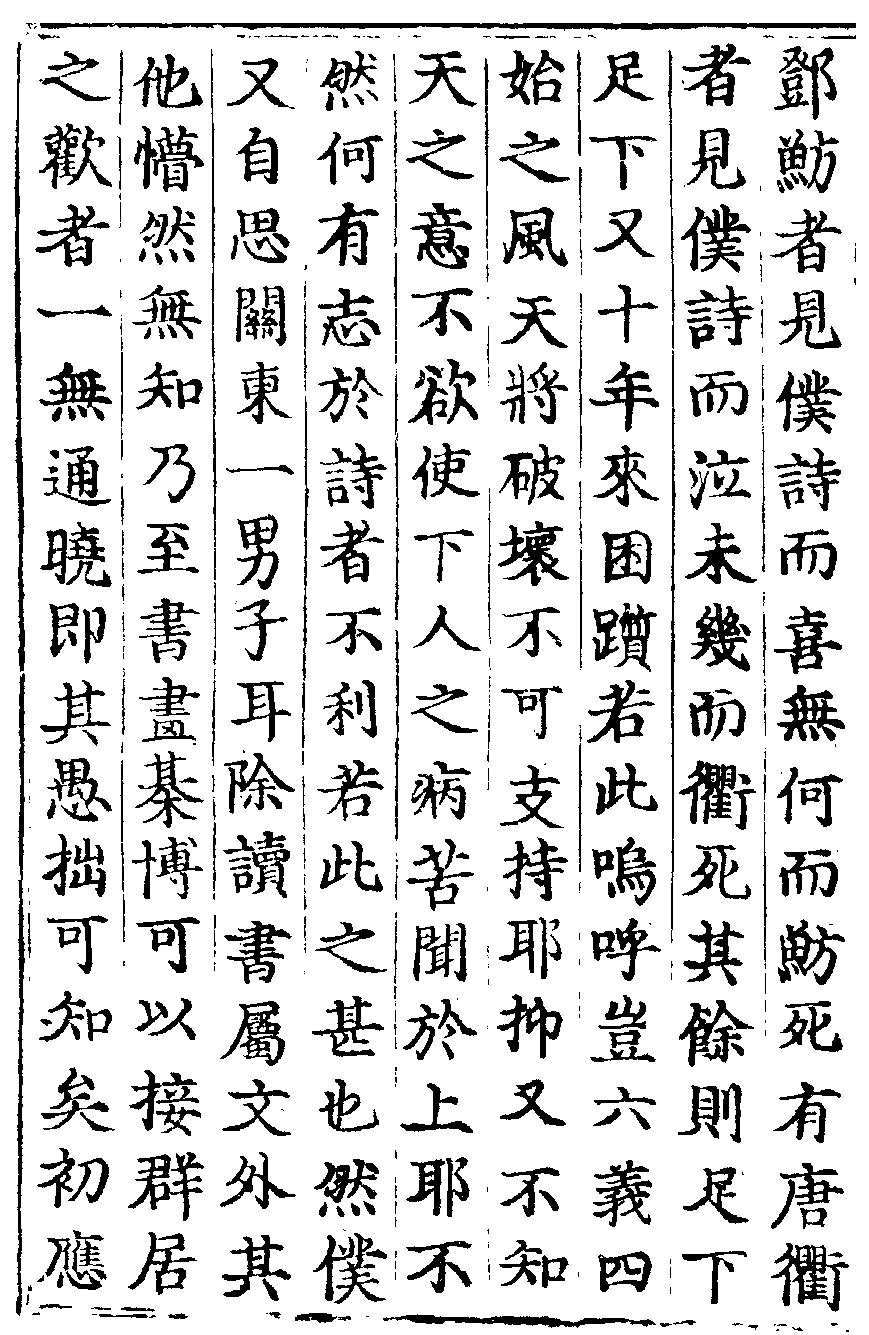 鄧魴者見僕詩而喜無何而魴死有唐衢
者見僕詩而泣未幾而衢死其餘則足下
足下又十年來困躓若此嗚呼豈六義四
始之風天將破壞不可支持耶抑又不知
天之意不欲使下人之病苦聞於上耶不
然何有志於詩者不利若此之甚也然僕
又自思關東一男子耳除讀書屬文外其
他懵然無知乃至書畫棊博可以接群居
之歡者一無通曉即其愚拙可知矣初應